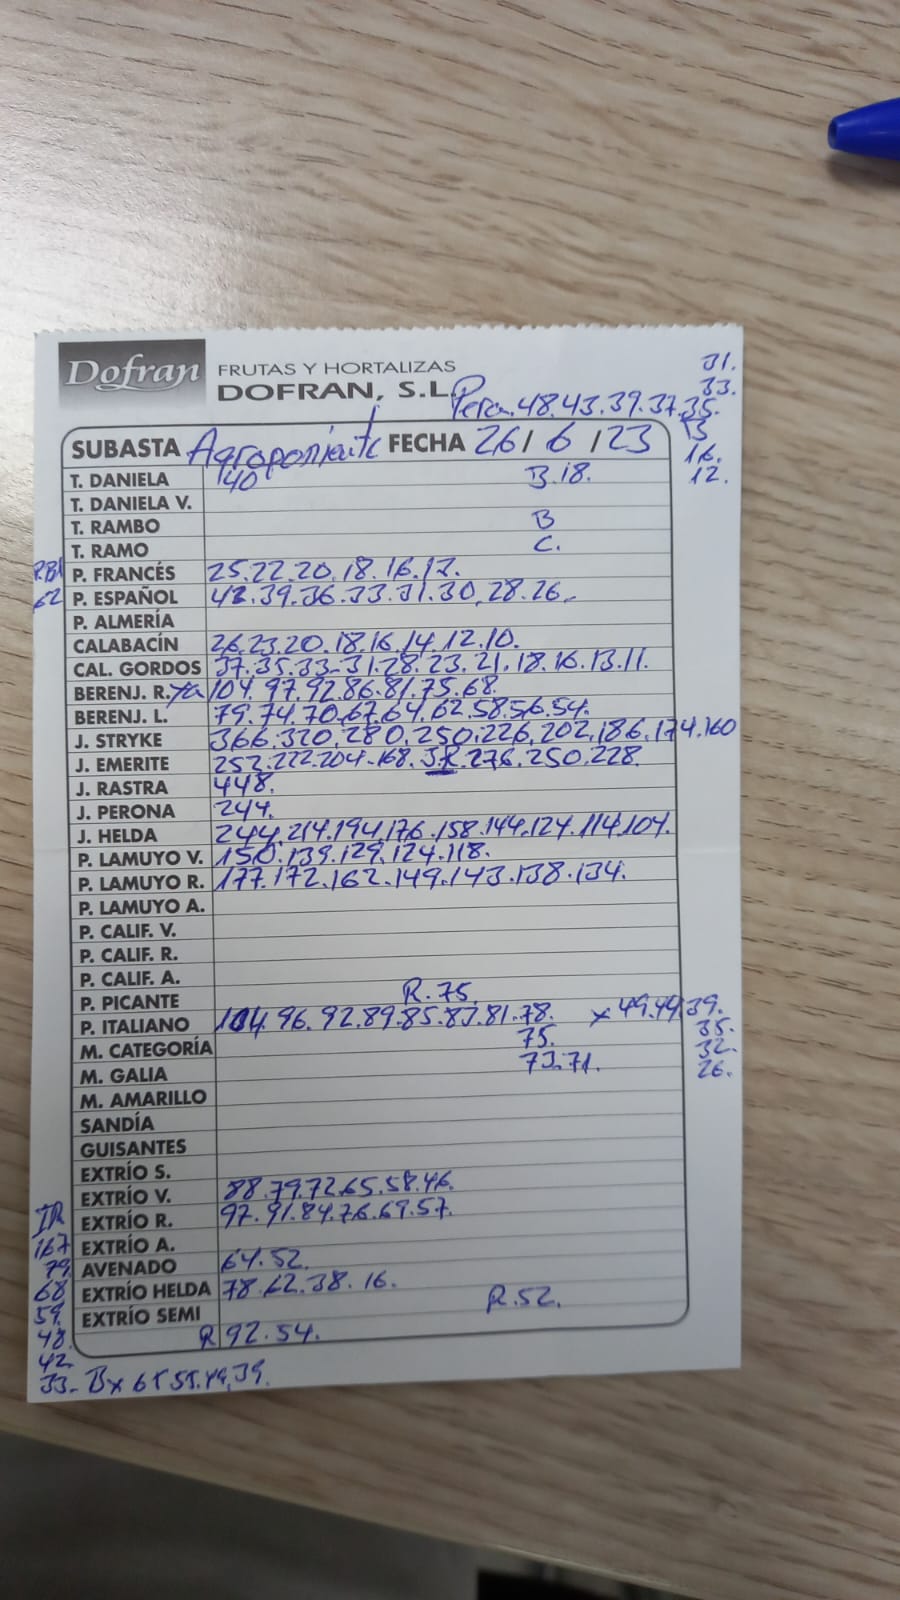 Dofran FRUTAS Y HORTALIZAS
DOFRAN, S.L.
Pera.48.43.39.37.35.
31.
33.
16.
12.
SUBASTA Agroponiente FECHA 26/6/23
T. DANIELA 40 B.18.
T. DANIELA V.
T. RAMBO B
T. RAMO C.
P. FRANCÉS 25.22.20.18.16.12.
62 P. ESPAÑOL 42.39.36.33.31.30.28.26.
P. ALMERÍA
CALABACÍN 26.23.20.18.16.14.12.10.
CAL. GORDOS 37.35.33.31.28.23.21.18.16.13.11.
BERENJ. R. Ya 104.97.92.86.81.75.68.
BERENJ. L. 79.74.70.67.64.62.58.56.54.
J. STRYKE 366.320.280.250.226.202.186.174.160
J. EMERITE 252.222.204.168. SR.276.250.228.
J. RASTRA 448.
J. PERONA 244.
J. HELDA 244.214.194.176.158.144.124.114.104.
P. LAMUYO V. 150.139.129.124.118.
P. LAMUYO R. 177.172.162.149.143.138.134.
P. LAMUYO A.
P. CALIF. V.
P. CALIF. R.
P. CALIF. A.
P. PICANTE R.75.
P. ITALIANO 104.96.92.89.85.83.81.78. x 49.44.39.
M. CATEGORÍA 75. 35.
M. GALIA 73.71. 32.
26.
M. AMARILLO
SANDÍA
GUISANTES
EXTRÍO S.
EXTRÍO V. 88.79.72.65.58.46.
EXTRÍO R. 97.91.84.76.69.57.
EXTRÍO A.
AVENADO 64.52.
EXTRÍO HELDA 78.62.38.16.
EXTRÍO SEMI R.52.
R 92.54.
IR
167
79.
68
59.
48.
42.
33- Bx 65 55.49.39.